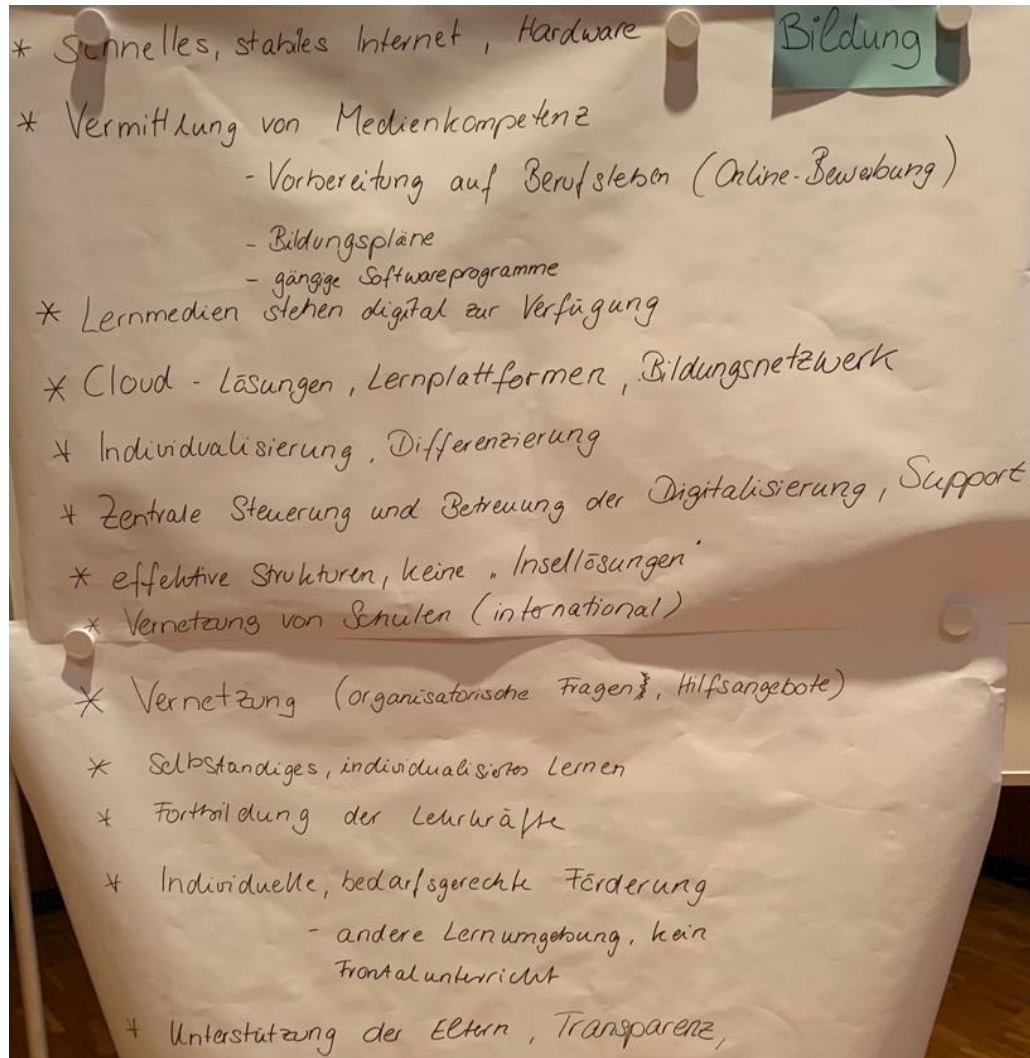 Bildung
* Schnelles, stabiles Internet, Hardware
* Vermittlung von Medienkompetenz
- Vorbereitung auf Berufsleben (Online-Bewerbung)
- Bildungspläne
- gängige Softwareprogramme
* Lernmedien stehen digital zur Verfügung
* Cloud - Lösungen, Lernplattformen, Bildungsnetzwerk
* Individualisierung, Differenzierung
* Zentrale Steuerung und Betreuung der Digitalisierung, Support
* effektive Strukturen, keine „Insellösungen"
* Vernetzung von Schulen (international)
* Vernetzung (organisatorische Fragen, Hilfsangebote)
* Selbständiges, individualisiertes Lernen
* Fortbildung der Lehrkräfte
* Individuelle, bedarfsgerechte Förderung
- andere Lernumgebung, kein
Frontalunterricht
* Unterstützung der Eltern, Transparenz,